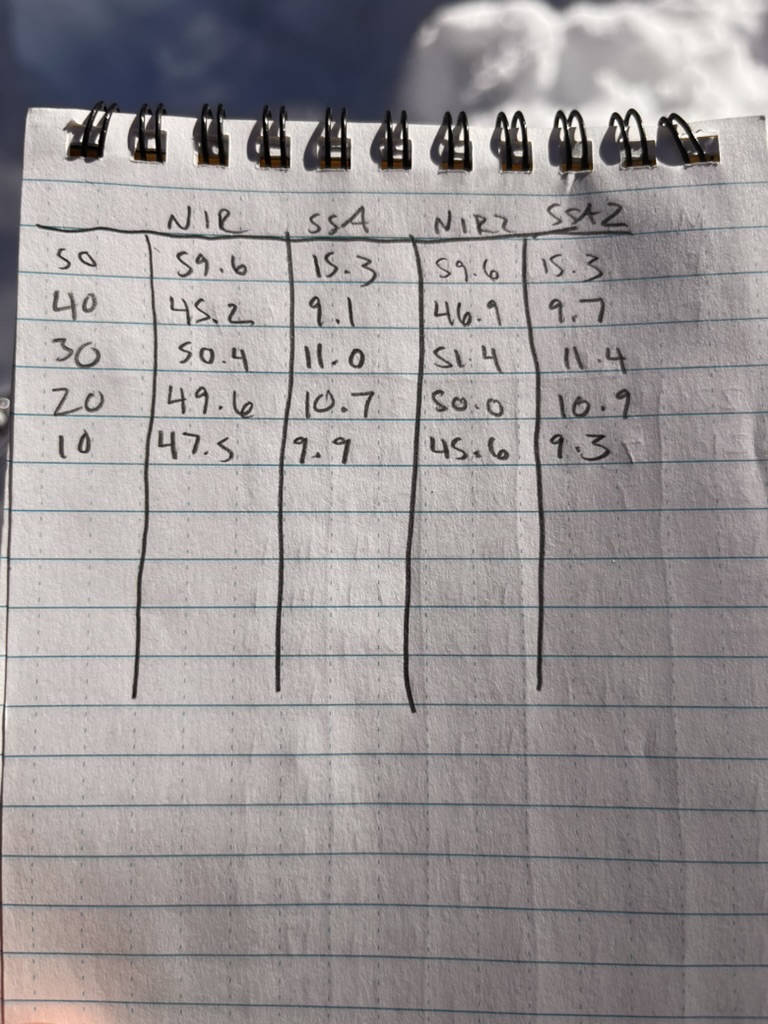 NIR SSA NIR2 SSA2
50 59.6 15.3 59.6 15.3
40 45.2 9.1 46.9 9.7
30 50.4 11.0 51.4 11.4
20 49.6 10.7 50.0 10.9
10 47.5 9.9 45.6 9.3